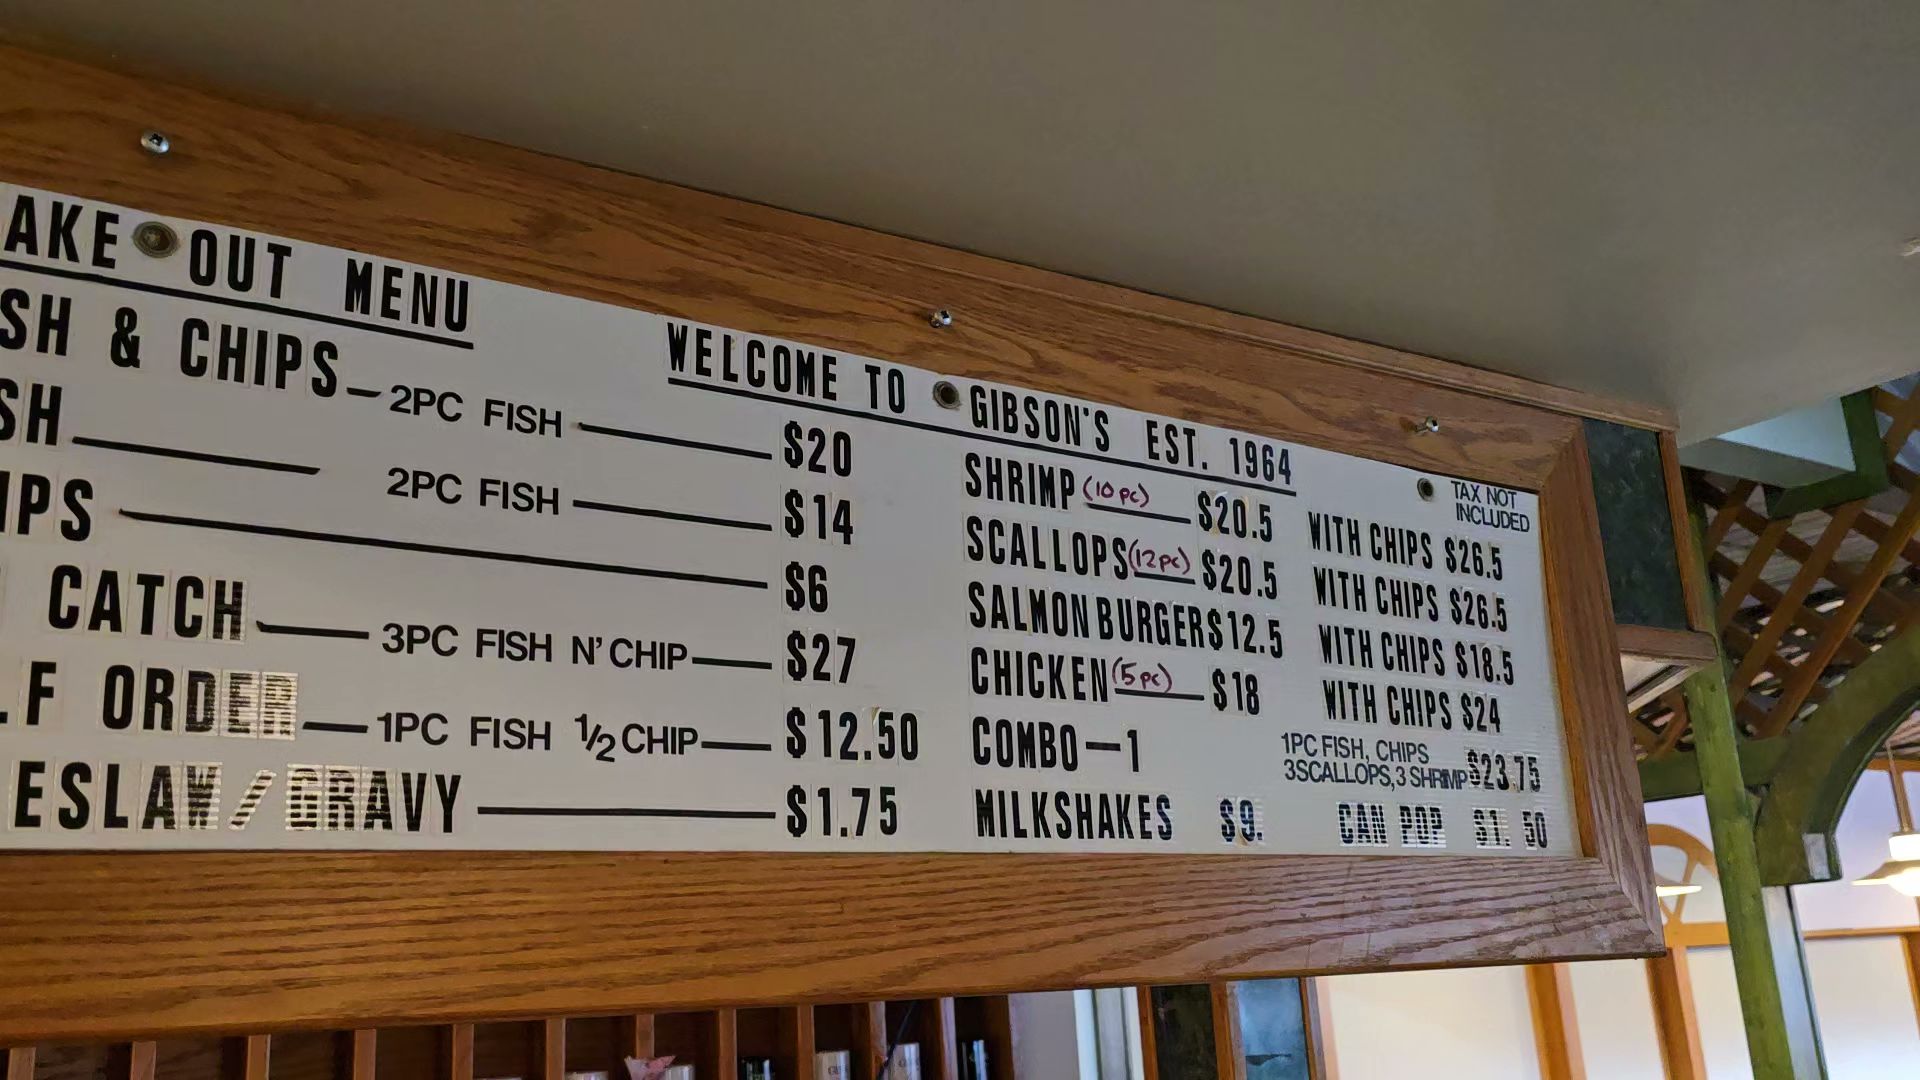 AKE OUT MENU
SH & CHIPS — 2PC FISH — $20
SH — 2PC FISH — $14
IPS — $6
CATCH — 3PC FISH N' CHIP — $27
LF ORDER — 1PC FISH 1/2 CHIP — $12.50
ESLAW/GRAVY — $1.75
WELCOME TO GIBSON'S EST. 1964
TAX NOT
INCLUDED
SHRIMP (10 pc) — $20.5 WITH CHIPS $26.5
SCALLOPS (12pc) — $20.5 WITH CHIPS $26.5
SALMON BURGER $12.5 WITH CHIPS $18.5
CHICKEN (5pc) — $18 WITH CHIPS $24
COMBO — 1 1PC FISH, CHIPS
3SCALLOPS, 3 SHRIMP $23.75
MILKSHAKES $9. CAN POP $1.50